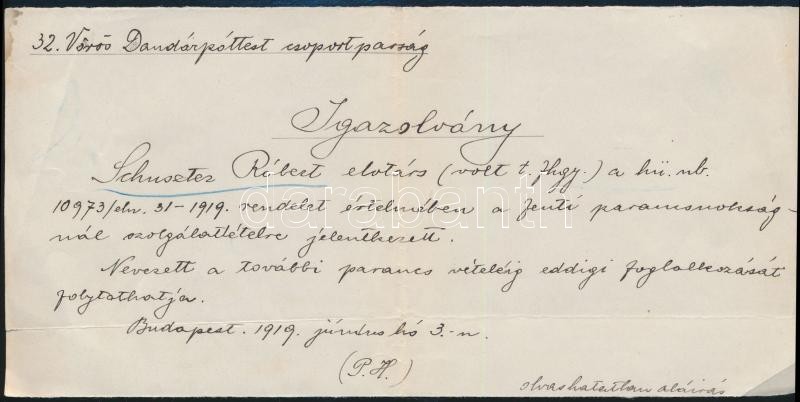 32. Vörös Dandárpóttest csoport parság
Igazolvány
Schuszter Róbert elvtárs (volt t. fhgy.) a hü. nb.
10973/eln. 31-1919. rendelet értelmében a fenti parancsnokság-
nál szolgálattételre jelentkezett.
Nevezett a további parancs vételéig eddigi foglalkozását
folytathatja.
Budapest. 1919. június hó 3.-n.
(P. H.)
olvashatatlan aláirás
darabanth